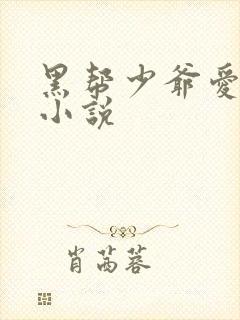 黑帮少爷愛
小說
肖茜蓉